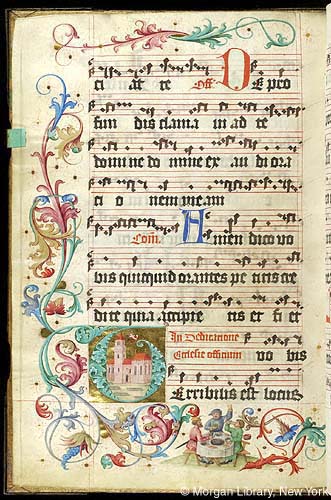 ci at te Off. De pro
fun dis clama in ad te
domi ne do mine ex au di ora
ci o nem me am
Com. Amen dico vo
bis quicquid orantes pe titis cre
dite quia accipie tis et fi et
In Dedicatione
Ecclesie officium vo bis
Erribilis est locus
© Morgan Library, New York